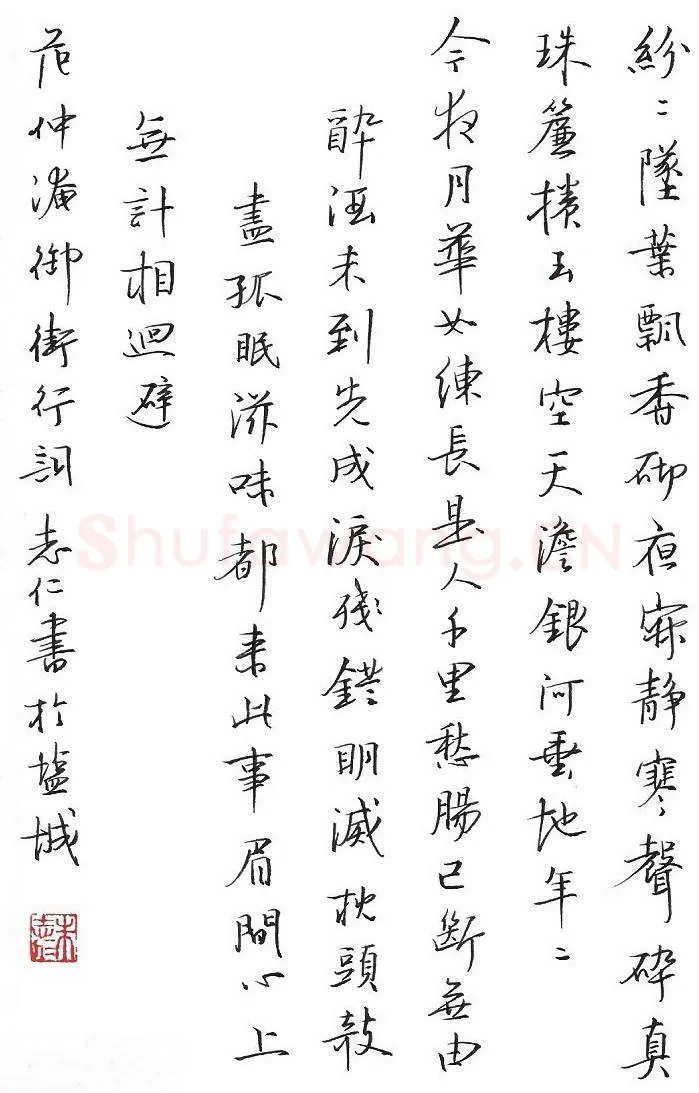 紛〻墜葉飄香砌夜寂靜寒聲碎真
珠簾捲玉樓空天澹銀河垂地年〻
今夜月華如練長是人千里愁腸已斷無由
醉酒未到先成淚殘燈明滅枕頭敧
盡孤眠滋味都来此事眉間心上
無計相迴避
范仲淹御街行詞 志仁書於塩城
Shufawang.CN